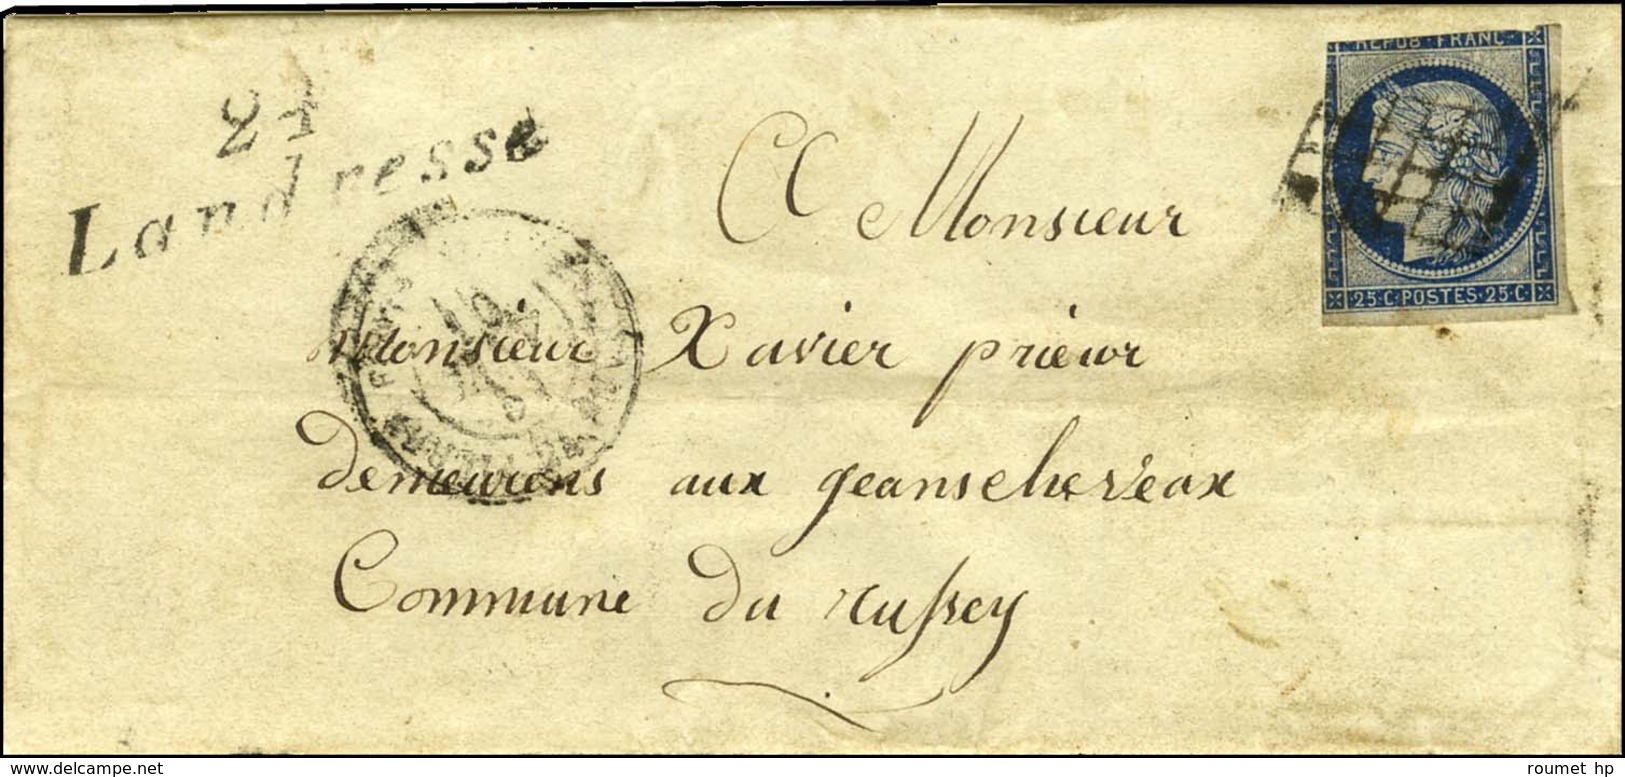 24
Landresse
REPUB·FRANC·
25·C·POSTES·25·C·
A Monsieur
Monsieur Xavier prieur
demeurens aux geanschereaux
Commune du russey
www.delcampe.net
roumet hp